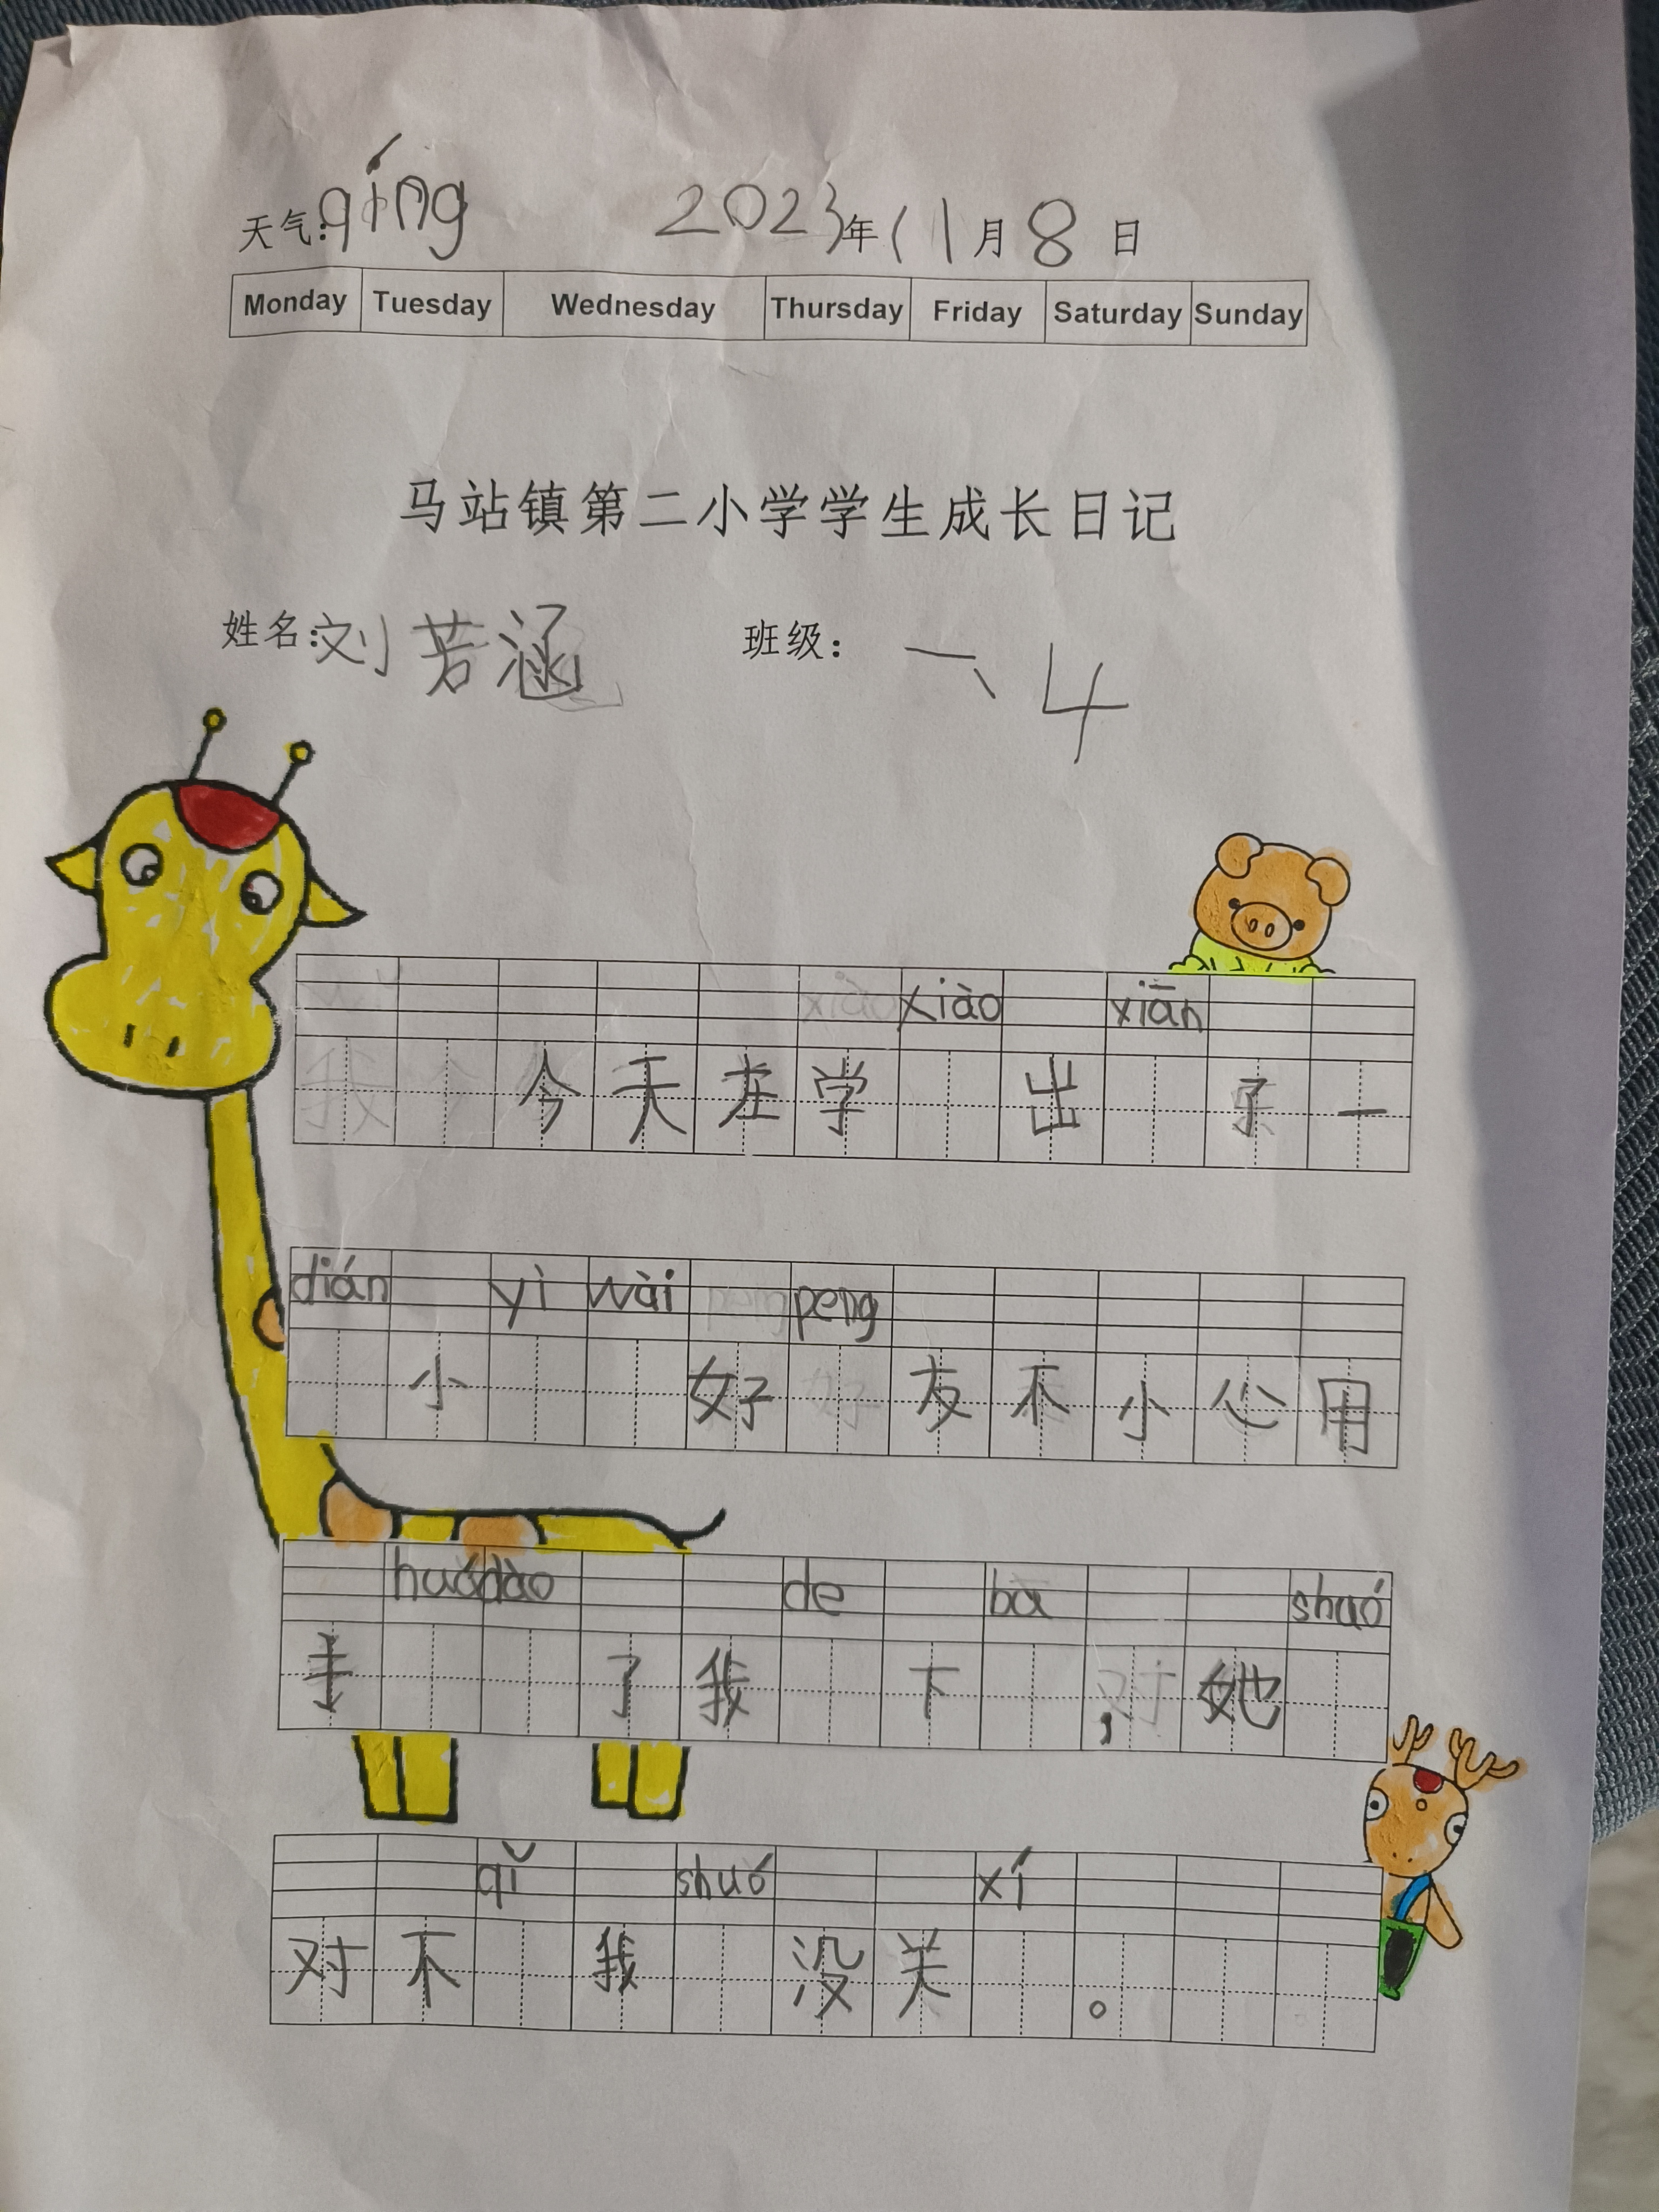 天气:qíng 2023年11月8日
Monday Tuesday Wednesday Thursday Friday Saturday Sunday
马站镇第二小学学生成长日记
姓名:刘芳涵 班级: 一、4
xiào xiān
今天在学 出 了一
dián yì wài peng
小 好 友不小心用
huó dào de ba shuó
手 了我 下 ,她
qǐ shuó xí
对不 我 没关 。